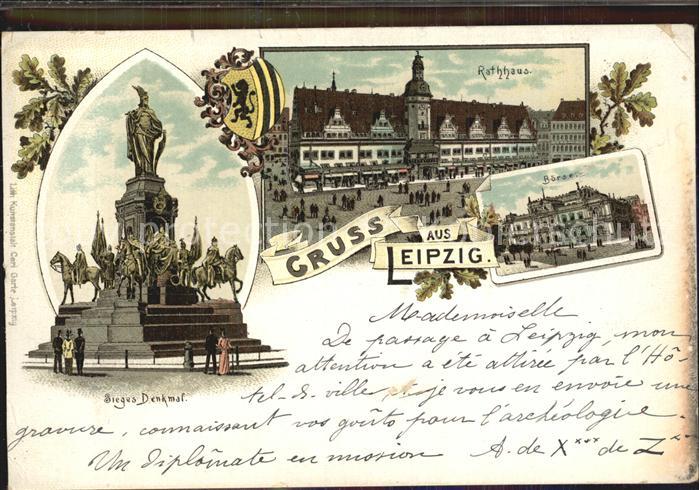 Rathhaus.
Börse.
GRUSS
AUS
LEIPZIG.
Sieges Denkmal.
Lith. Kunstanstalt Carl Garte, Leipzig
Mademoiselle
De passage à Leipzig, mon
attention a été attirée par l'Hô-
tel-d-ville, je vous en envoie une
gravure, connaissant vos goûts pour l'archéologie.
Un diplômate en mission A. de X*** de Z***